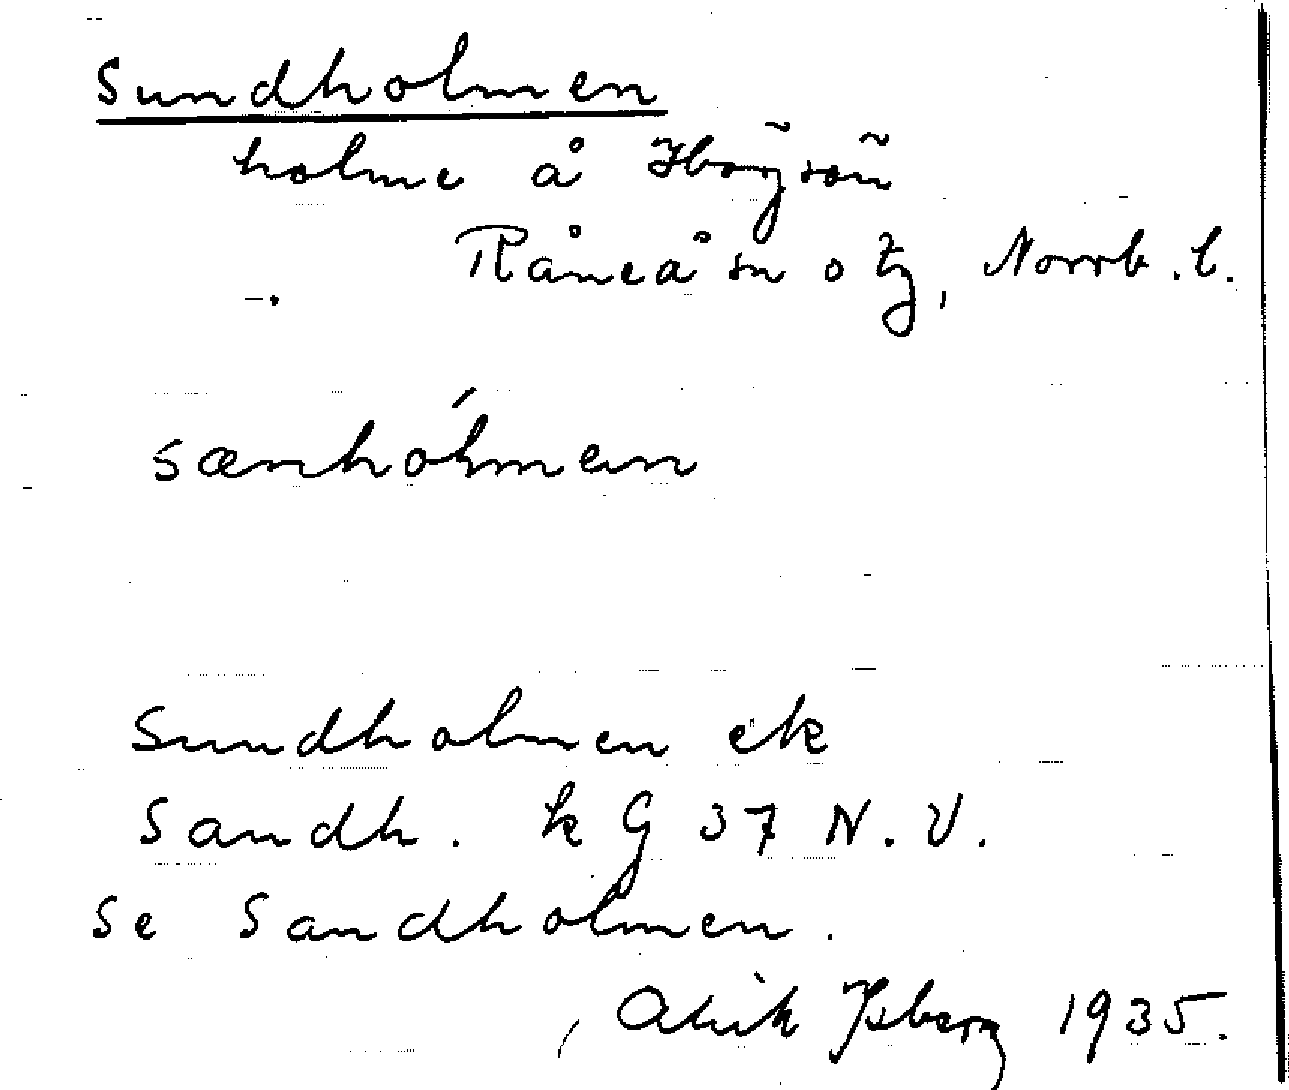 Sundholmen
holme å
Råneå sn o tg, Norrb. l.
sænhólmen
Sundholmen ek
Sandh. k G 37 N. V.
Se Sandholmen.
Alrik Ysberg 1935.